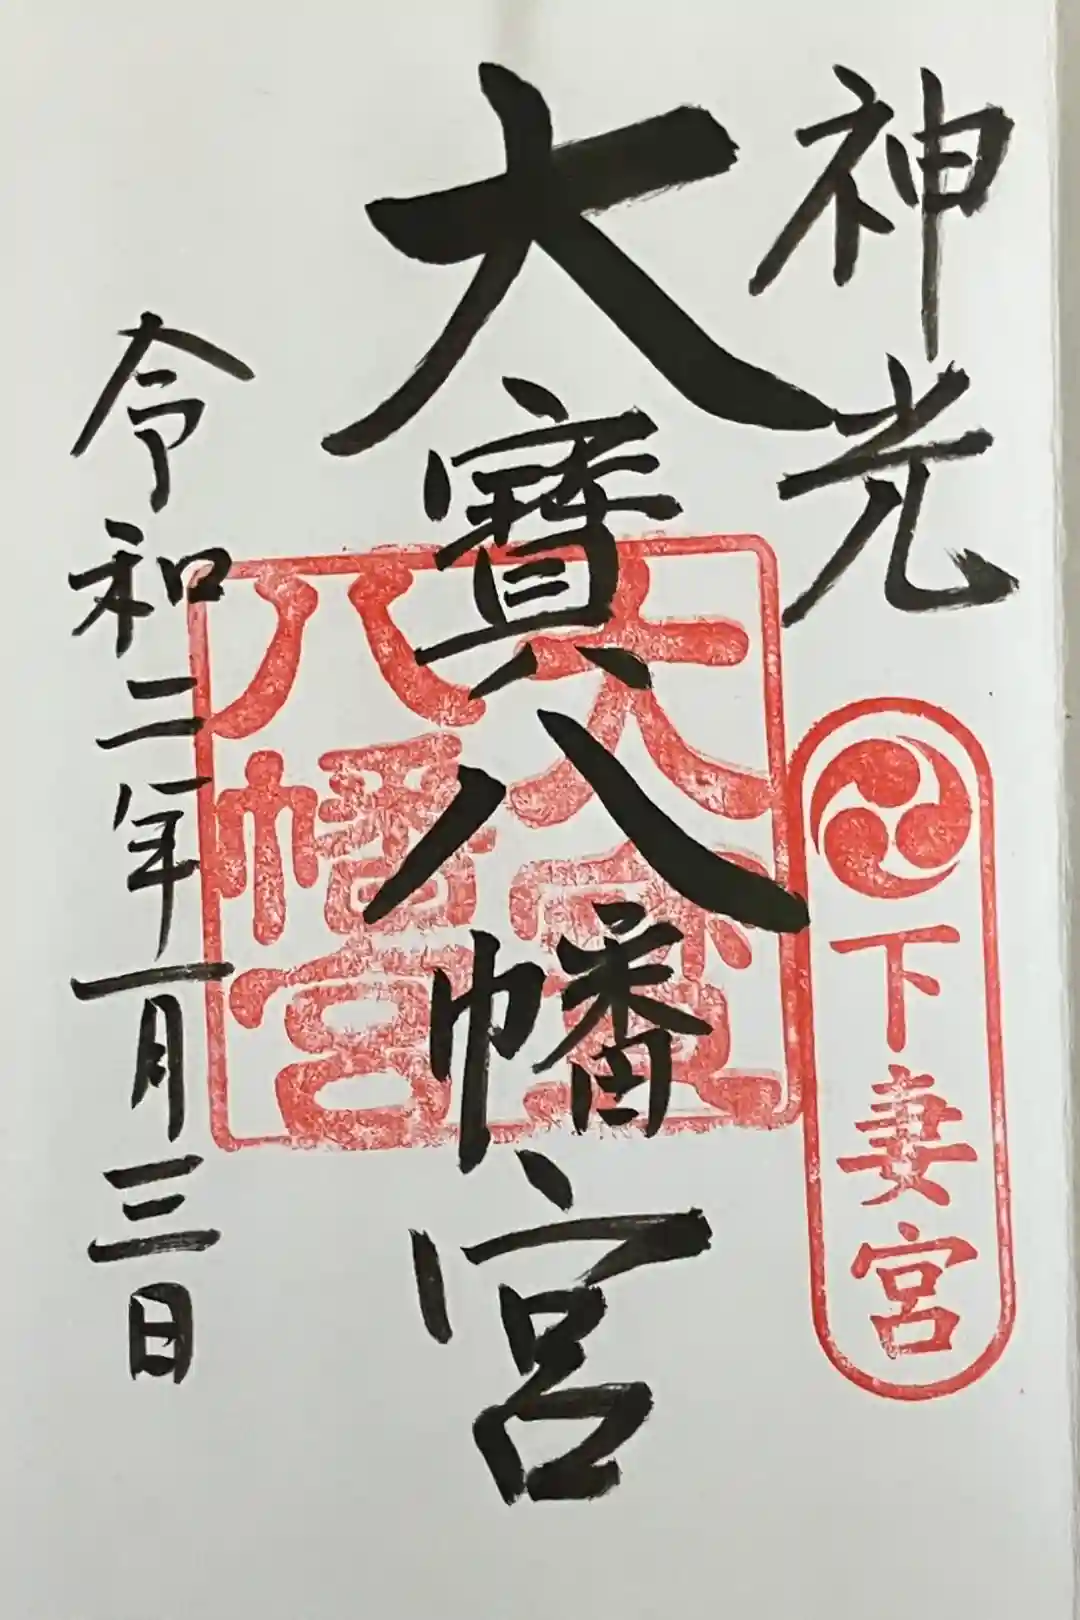 神光
下妻宮
大寶八幡宮
大寳
八幡宮
令和二年一月三日